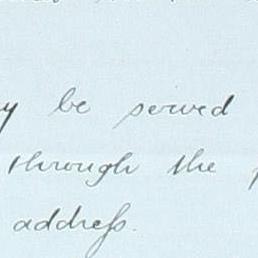 be served
through the
address.